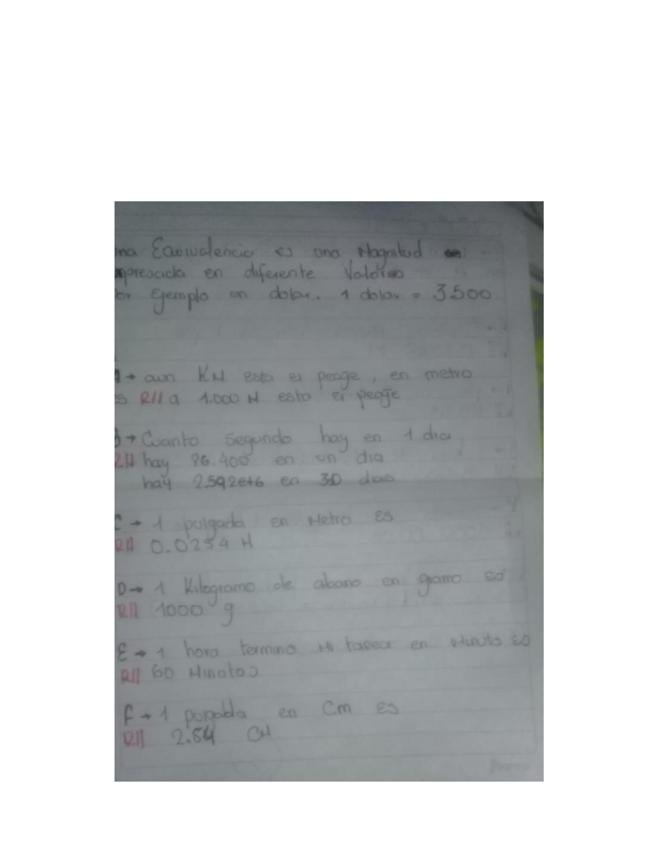 na Equivalencia es una Magnitud en
apresiada en diferente Valores
or Ejemplo un dolar. 1 dolar = 3500
A → aun KM esta el peage, en metro
es R// a 1.000 M esta el peaje
B → Cuanto Segundo hay en 1 dia
R// hay 86.400 en un dia
hay 2.592e+6 en 30 dias
C → 1 pulgada en Metro es
R// 0.0254 M
D → 1 Kilogramo de abono en gramo es
R// 1000 g
E → 1 hora termino Mi tarea en Minuto es
R// 60 Minutos
F → 1 pulgada en Cm es
R// 2.54 CM